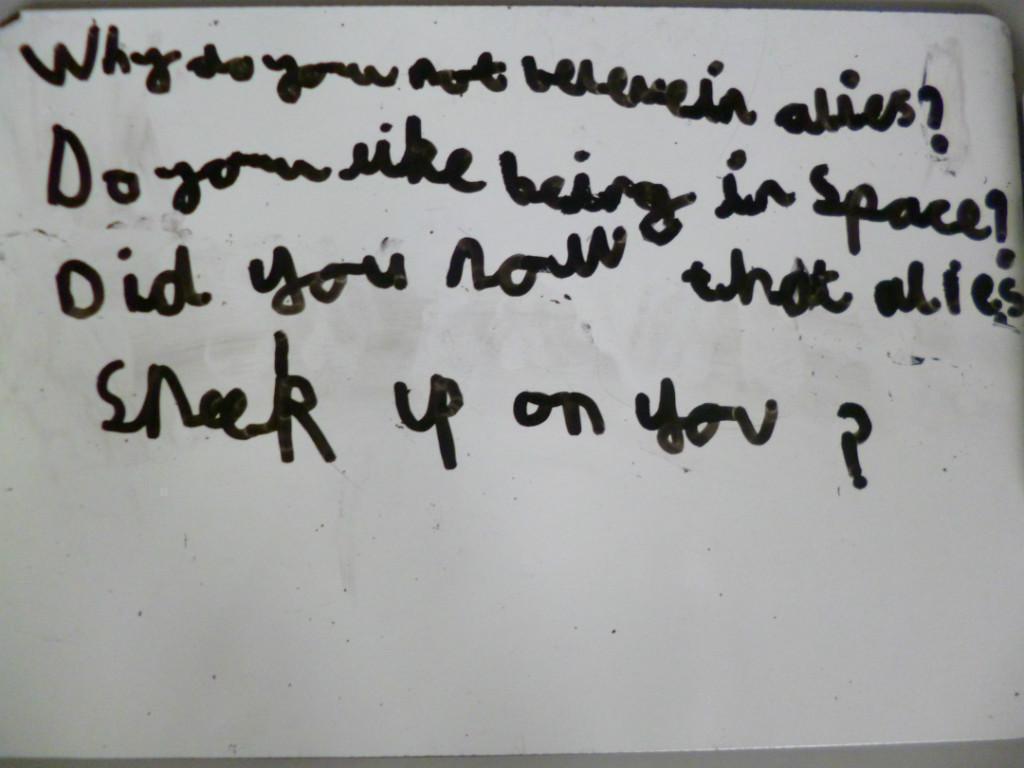 Why do you not beleve in alies?
Do you like being in Space?
Did you now that alies
Sneek up on you ?